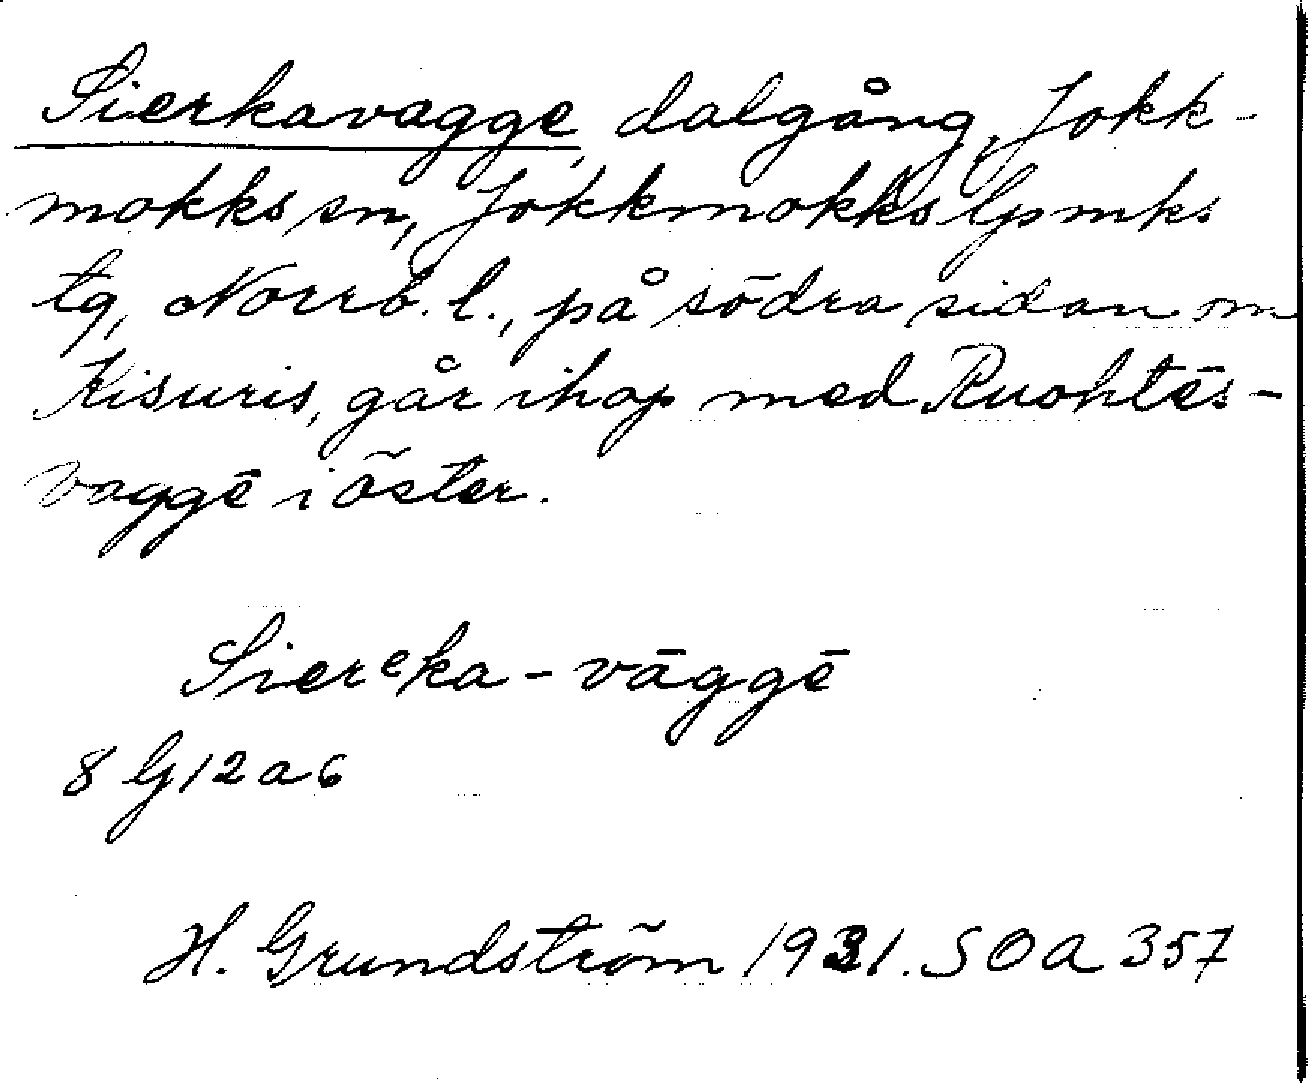 Sierkavagge, dalgång, Jokk-
mokks sn, Jokkmokks lpmks
tg, Norrb. l., på södra sidan om
Kisuris, går ihop med Ruohtēs-
vaggē i öster.
Sierᵉka-vāggē
8 G 12 a 6
H. Grundström 1931. SOA 357